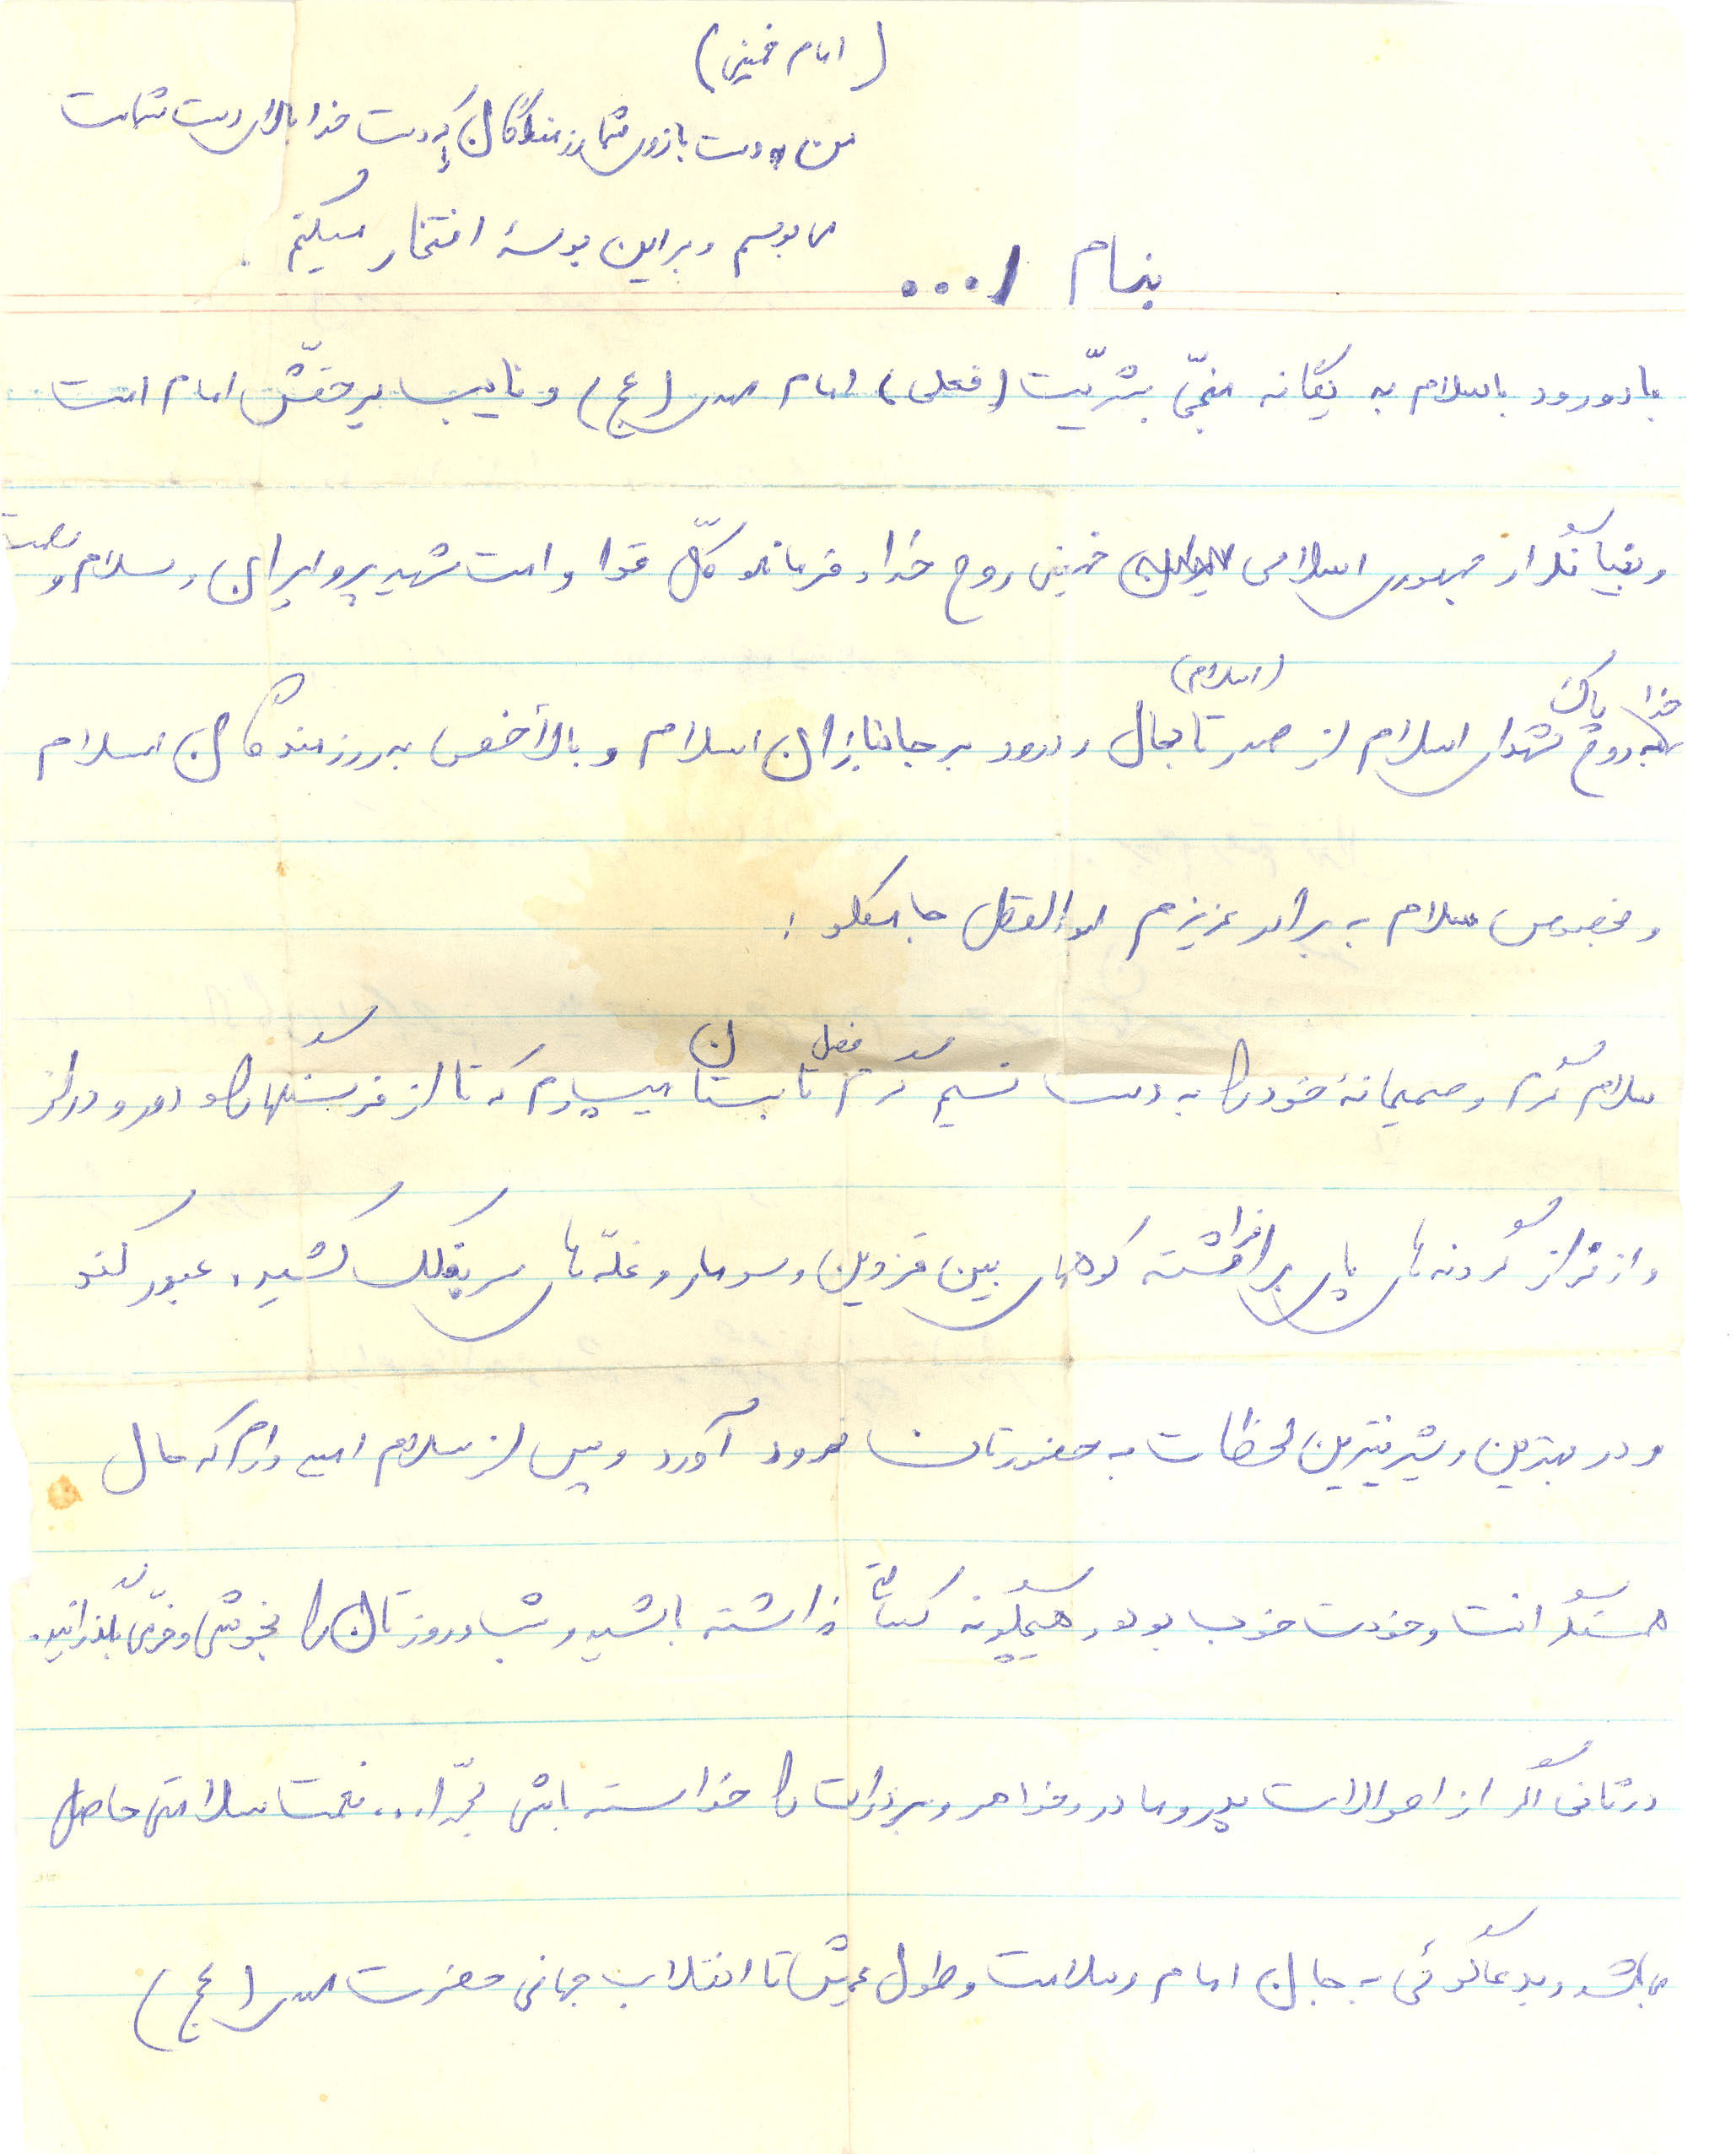 (امام خمینی)
من دست بازوی شما رزمندگان که دست خدا بالای دست شماست
می بوسم و بر این بوسه افتخار میکنم.
بنام ا...
با درورد با سلام به یگانه منجّی بشریّت (فعلی) امام مهدی (عج) و نایب بر حقّش امام امت
و بنیانگذار جمهوری اسلامی خمینی روح خدا و فرمانده کلّ قوا و امت شهید پرو ایران و سلام و
خدا به روح پاک شهدای اسلام از صدر (اسلام) تا بحال و درود بر جانبازان اسلام و بالأخص به روزمندگان اسلام
و بخصوص سلام به برادر عزیزم ابوالفضل
سلام گرم و صمیمانهٔ خود را به دست نسیم گرم فصل تابستان میسپارم که تا از فرسنگها راه دور و دراز
و از فراز گردنه های پای برافراشته کوههای بین قزوین و سومار و غلّه های سر بفلک کشیده عبور کند
و در بهترین و شیرینترین لحظات به حضورتان فرود آورد و پس از سلام امید دارم که حال
همسنگرانت و خودت خوب بوده و هیچگونه کسالتی نداشته باشید و شب و روزتان را بخوشی و خرّمی بگذرانید.
در ثانی اگر از احوالات پدر و مادر و خواهر و برادرات را خواسته باشی بحمدا... نعمت سلامتی حاصل
می باشد و بدعاگوئی به جان امام و سلامت و طول عمرش تا انقلاب جهانی حضرت مهدی (عج)